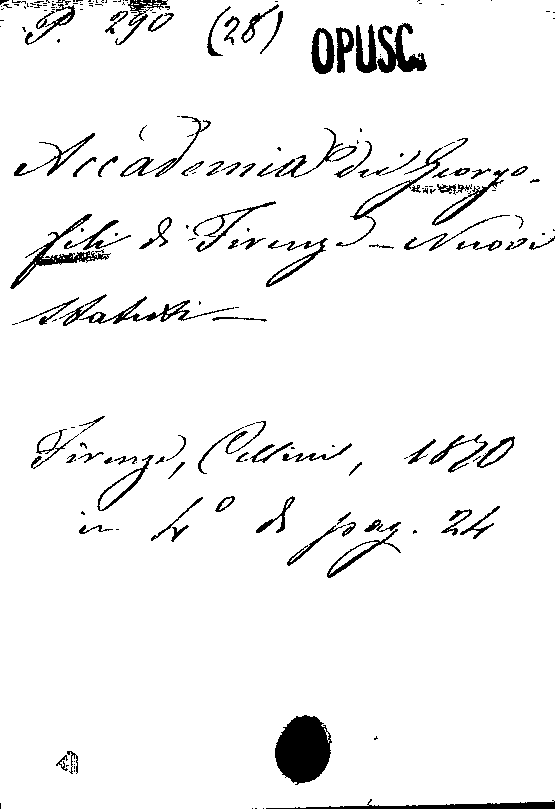 P. 290 (28) OPUSC.
Accademia dei Georgo-
fili di Firenze - Nuovi
Statuti -
Firenze, Cellini, 1870
in 4º di pag. 24